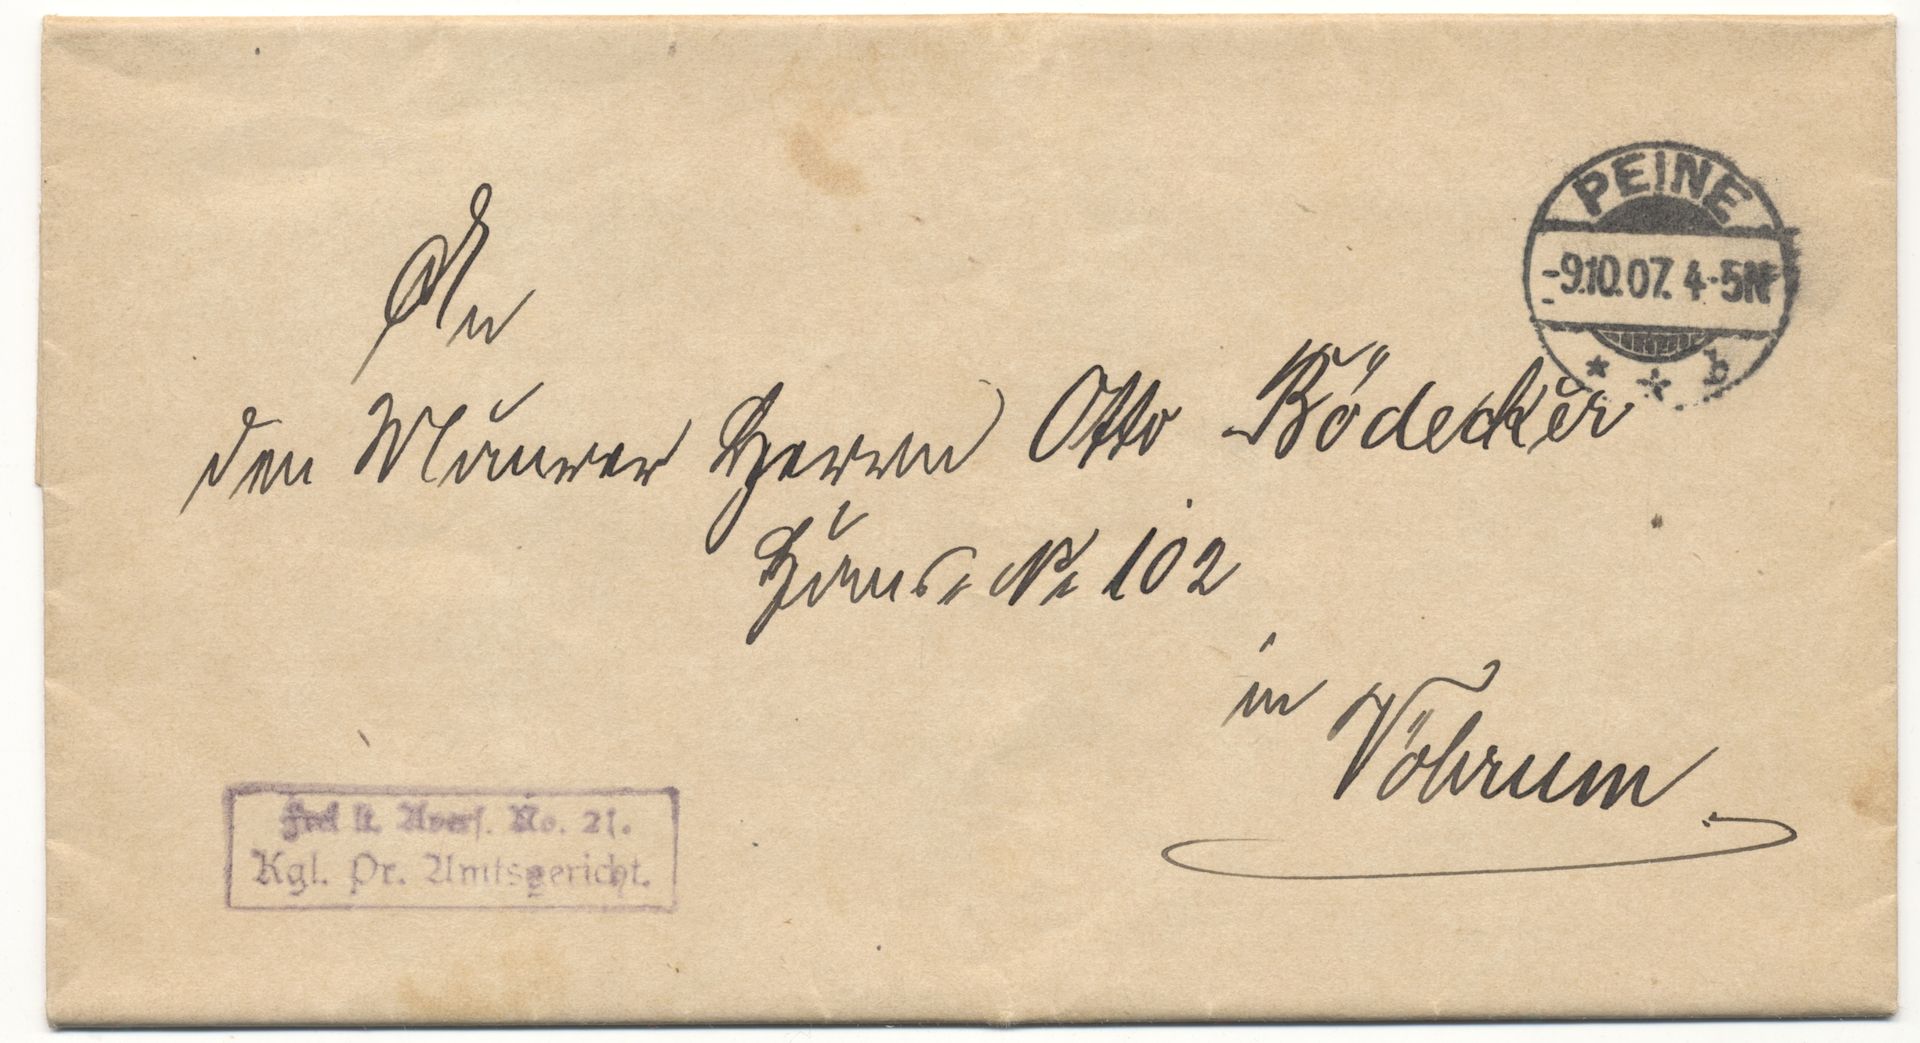 PEINE
-9.10.07. 4-5N
* * b
An
den Maurer Herrn Otto Bödecker
Haus. No 102
in
Vöhrum.
Frei lt. Avers. No. 21.
Kgl. Pr. Amtsgericht.